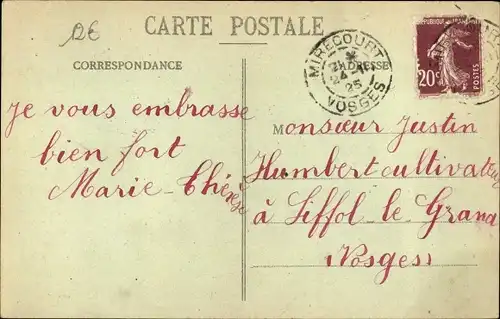 DE
CARTE POSTALE
CORRESPONDANCE
ADRESSE
MIRECOURT
24 - 11
25
VOSGES
REPUBLIQUE
20c
POSTES
Je vous embrasse
bien fort
Marie-Thérèse
Monsieur Justin
Humbert cultivateu
à Liffol-le-Grand
(Vosges)